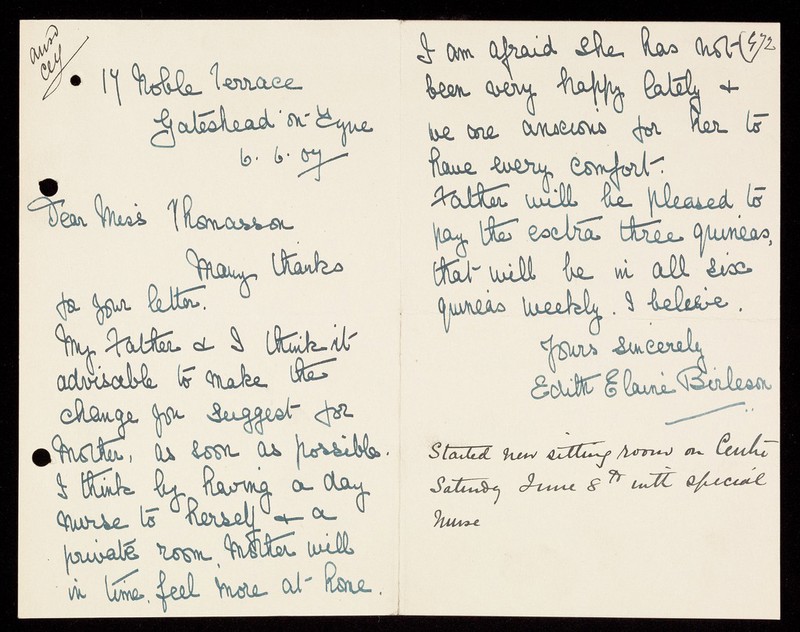 ansd
17 Noble Terrace
Gateshead on Tyne
6. 6. 07
Dear Miss Thomasson
Many thanks
for your letter.
My Father & I think it
advisable to make the
change you suggest for
Mother, as soon as possible.
I think by having a day
nurse to herself & a
private room, Mother will
in time, feel more at home.
I am afraid she has not
been very happy lately &
we are anxious for her to
have every comfort.
Father will be pleased to
pay the extra three guineas,
that will be in all six
guineas weekly. I beleive.
Yours sincerely
Edith Elaine Birleson
Started new sitting room on Centre
Saturday June 8th with special
nurse